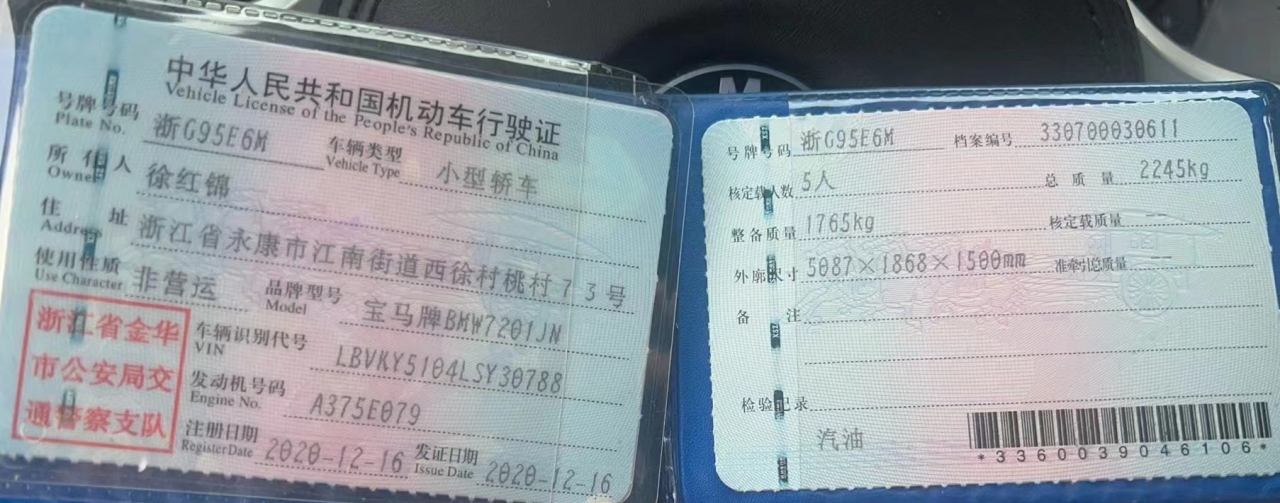 中华人民共和国机动车行驶证
Vehicle License of the People's Republic of China
号牌号码 浙G95E6M 车辆类型 小型轿车
Plate No. Vehicle Type
所有人 徐红锦
Owner
住址 浙江省永康市江南街道西徐村桃村73号
Address
使用性质 非营运 品牌型号 宝马牌BMW7201JN
Use Character Model
浙江省金华
市公安局交
通警察支队
车辆识别代号 LBVKY5104LSY30788
VIN
发动机号码 A375E079
Engine No.
注册日期 2020-12-16 发证日期 2020-12-16
Register Date Issue Date
号牌号码 浙G95E6M 档案编号 330700030611
核定载人数 5人 总质量 2245kg
整备质量 1765kg 核定载质量 --
外廓尺寸 5087×1868×1500mm 准牵引总质量 --
备注
检验记录
汽油
*3360039046106*